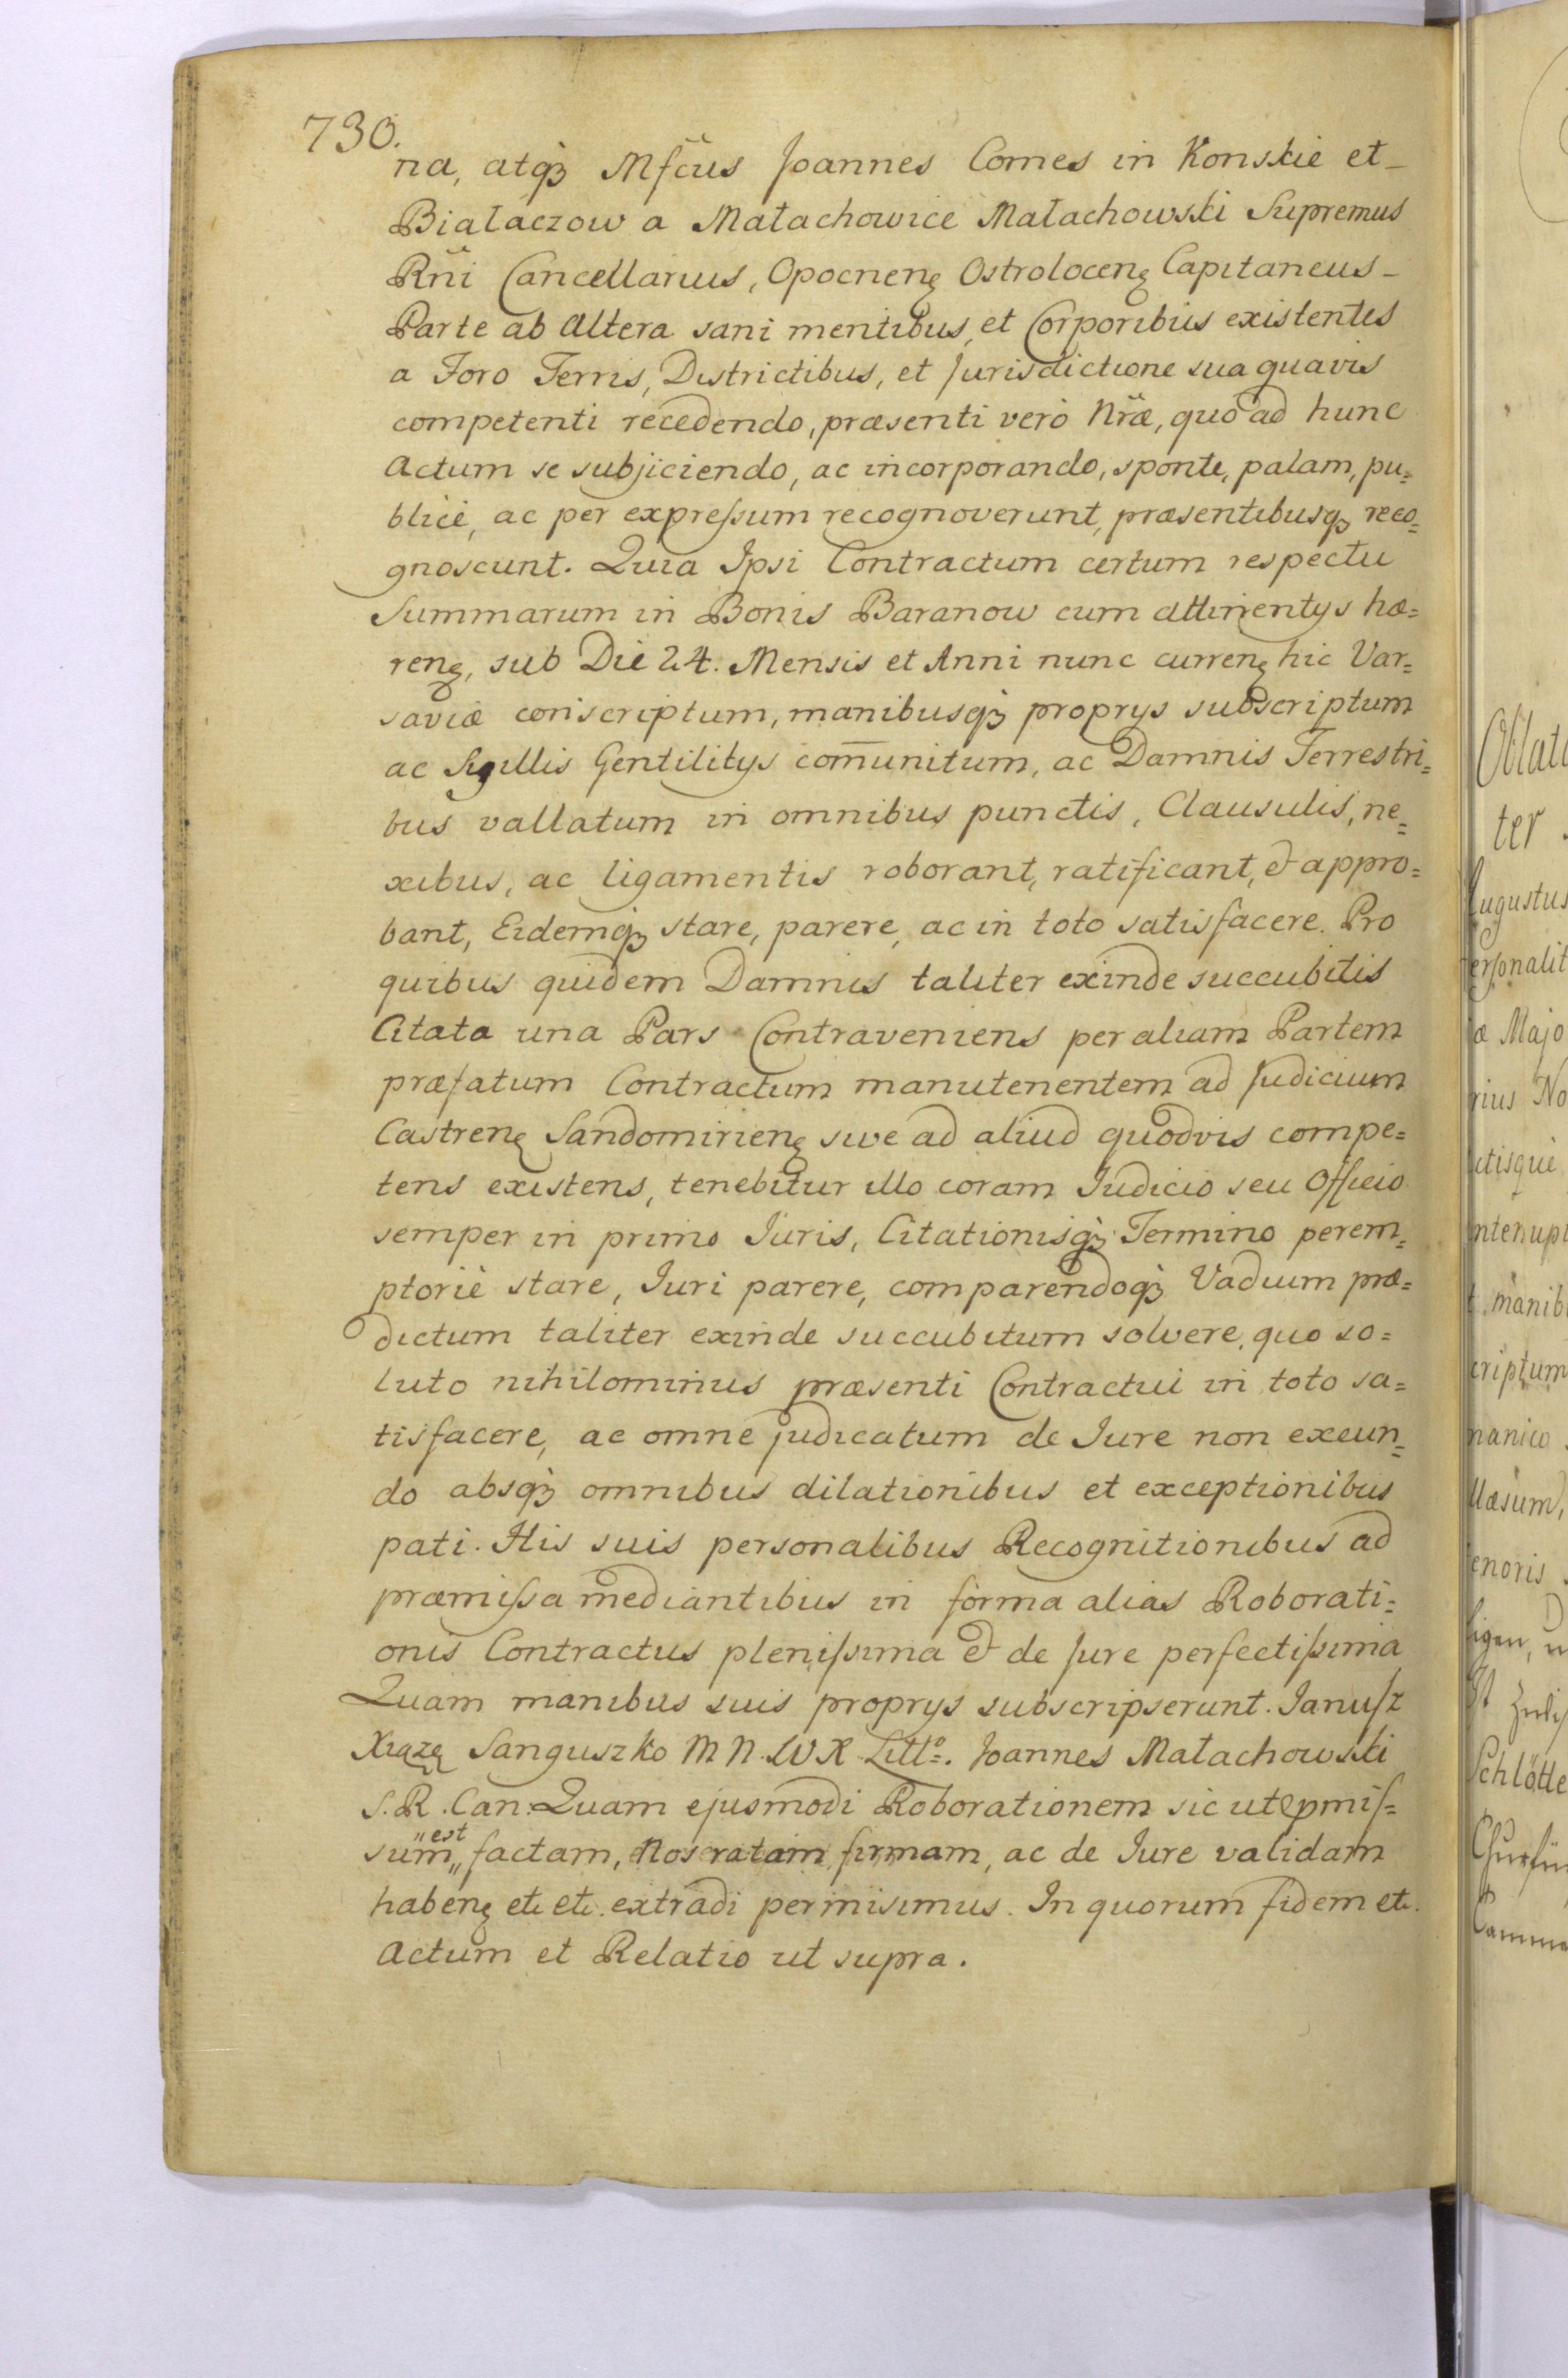 730.
na, atqꝫ Mfcus Joannes Comes in Konskie et_
Białaczow a Małachowice Małachowski Supremus
Rni Cancellarius, Opocnenę Ostrolocenę Capitaneus_
Parte ab altera sani mentibus, et Corporibus existentes
a Foro Terris, Districtibus, et Jurisdictione sua quavis
competenti recedendo, præsenti verò Nræ, quo ad hunc
actum se subjiciendo, ac incorporando, sponte, palam, pu=
blicè, ac per expreſsum recognoverunt, præsentibusqꝫ reco=
gnoscunt. Quia Ipsi Contractum certum respectu
Summarum in Bonis Baranow cum attinentys hæ=
renę, sub Die 24. Mensis et Anni nunc currenę hic Var=
saviæ conscriptum, manibusqꝫ proprys subscriptum
ac Sigillis Gentilitys com̄unitum, ac Damnis Terrestri=
bus vallatum in omnibus punctis, Clausulis, ne=
xibus, ac ligamentis roborant, ratificant, & appro=
bant, Eidemqꝫ stare, parere, ac in toto satisfacere. Pro
quibus quidem Damnis taliter exinde succubitis
Citata una Pars Contraveniens per aliam Partem
præfatum Contractum manutenentem ad Judicium
Castrenę Sandomirienę sive ad aliud quodvis compe=
tens existens, tenebitur illo coram Iudicio seu Officio
semper in primo Iuris, Citationisqꝫ Termino perem=
ptoriè stare, Iuri parere, comparendoqꝫ Vadium præ=
dictum taliter exinde succubitum solvere, quo so=
luto nihilominus præsenti Contractui in toto sa=
tisfacere, ac omne judicatum de Iure non exeun=
do absqꝫ omnibus dilationibus et exceptionibus
pati. His suis personalibus Recognitionibus ad
præmiſsa mediantibus in forma alias Roborati=
onis Contractus pleniſsima & de Jure perfectiſsima
Quam manibus suis proprys subscripserunt. Ianuſz
Xiązę Sanguszko M N. W X Litto. Joannes Małachowski
S. R. Can: Quam ejusmodi Roborationem sic ut pmiſ=
"est
sum" factam, Nos ratam firmam, ac de Iure validam
habenę etc etc. extradi permisimus. In quorum fidem etc.
Actum et Relatio ut supra.
ter